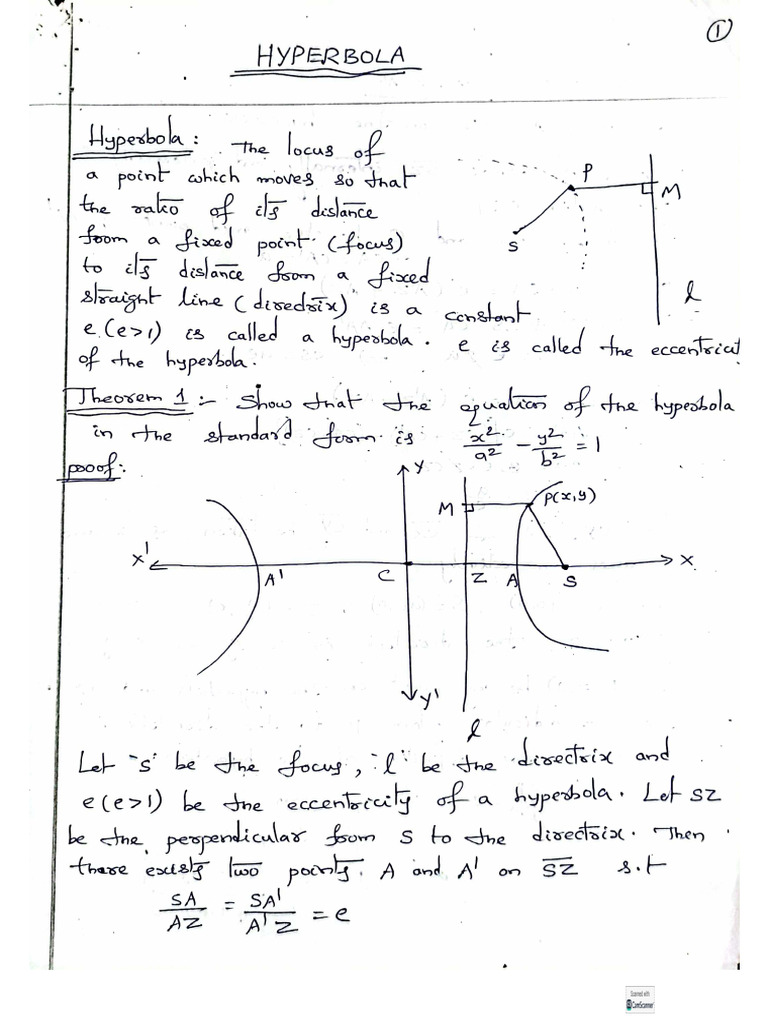 ①
HYPERBOLA
Hyperbola: The locus of
a point which moves so that
the ratio of its distance
from a fixed point (focus)
to its distance from a fixed
straight line (directrix) is a constant
e (e>1) is called a hyperbola. e is called the eccentricit
of the hyperbola.
P
M
S
l
Theorem 1:- Show that the equation of the hyperbola
in the standard form is x²/a² - y²/b² = 1
proof:
Y
M
P(x,y)
X'
A'
C
Z
A
S
X
Y'
l
Let "S" be the focus, "l" be the directrix and
e (e>1) be the eccentricity of a hyperbola. Let SZ
be the perpendicular from S to the directrix. Then
there exists two points A and A' on S̅Z̅ s.t
SA/AZ = SA'/A'Z = e
Scanned with
CamScanner